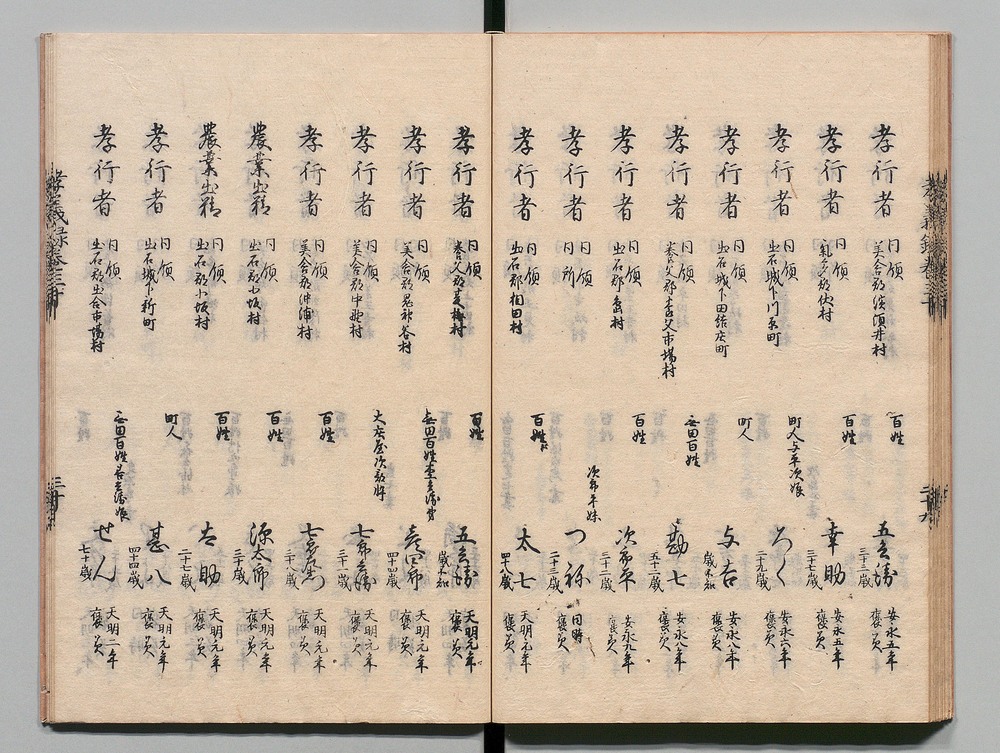 孝行者
同領
美含郡浜須井村
百姓
五兵衛
三十三歳
安永五年
褒美
孝行者
同領
気多郡伏村
百姓
幸助
三十七歳
安永五年
褒美
孝行者
同領
出石城下川原町
町人与平次娘
ろく
三十九歳
安永六年
褒美
孝行者
同領
出石城下田結庄町
町人
与吉
歳不知
安永八年
褒美
孝行者
同領
養父郡養父市場村
無田百姓
勘七
五十一歳
安永八年
褒美
孝行者
同領
出石郡奥村
百姓
次郎平
三十二歳
安永九年
褒美
孝行者
同領
同所
次郎平妹
つね
二十三歳
同時
褒美
孝行者
同領
出石郡相田村
百姓
太七
四十八歳
天明元年
褒美
孝行者
同領
百姓
五兵衛
歳不知
天明元年
褒美
孝行者
同領
美含郡鬼神谷村
無田百姓
彦四郎
四十四歳
天明元年
褒美
孝行者
同領
美含郡中野村
七郎兵衛
三十一歳
天明元年
褒美
孝行者
同領
美含郡沖浦村
百姓
三十八歳
天明元年
褒美
農業出精
同領
出石郡小坂村
百姓
源太郎
三十歳
天明元年
褒美
農業出精
同領
出石郡小坂村
百姓
右助
二十七歳
天明元年
褒美
孝行者
同領
出石城下新町
町人
甚八
四十四歳
天明二年
褒美
孝行者
同領
出石郡出合市場村
無田百姓善兵衛娘
せん
七十歳
天明二年
褒美